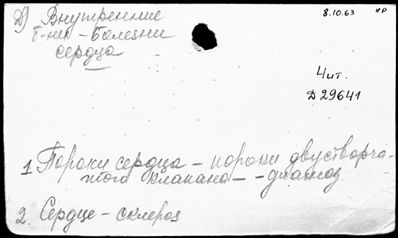 Д) Внутренние
б-ни - Болезни
сердца
8.10.63 НР
Чит.
Д 29641
1 Пороки сердца - пороки двустворча-
того клапана - - диагноз
2. Сердце - склероз